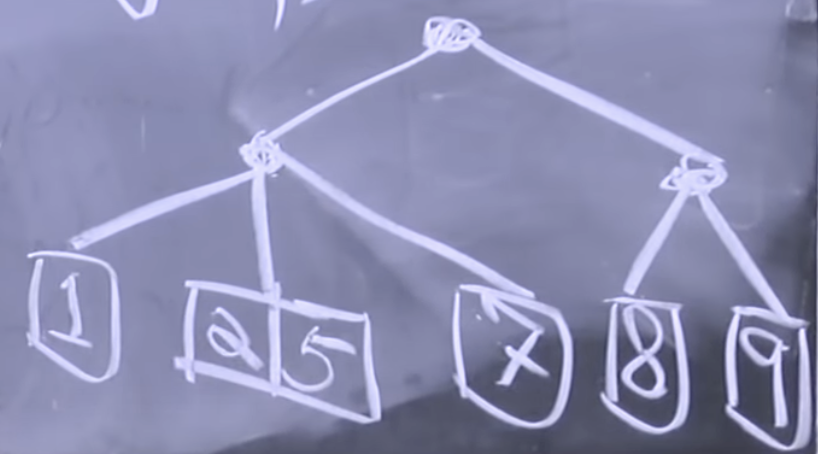 1 2 5 7 8 9